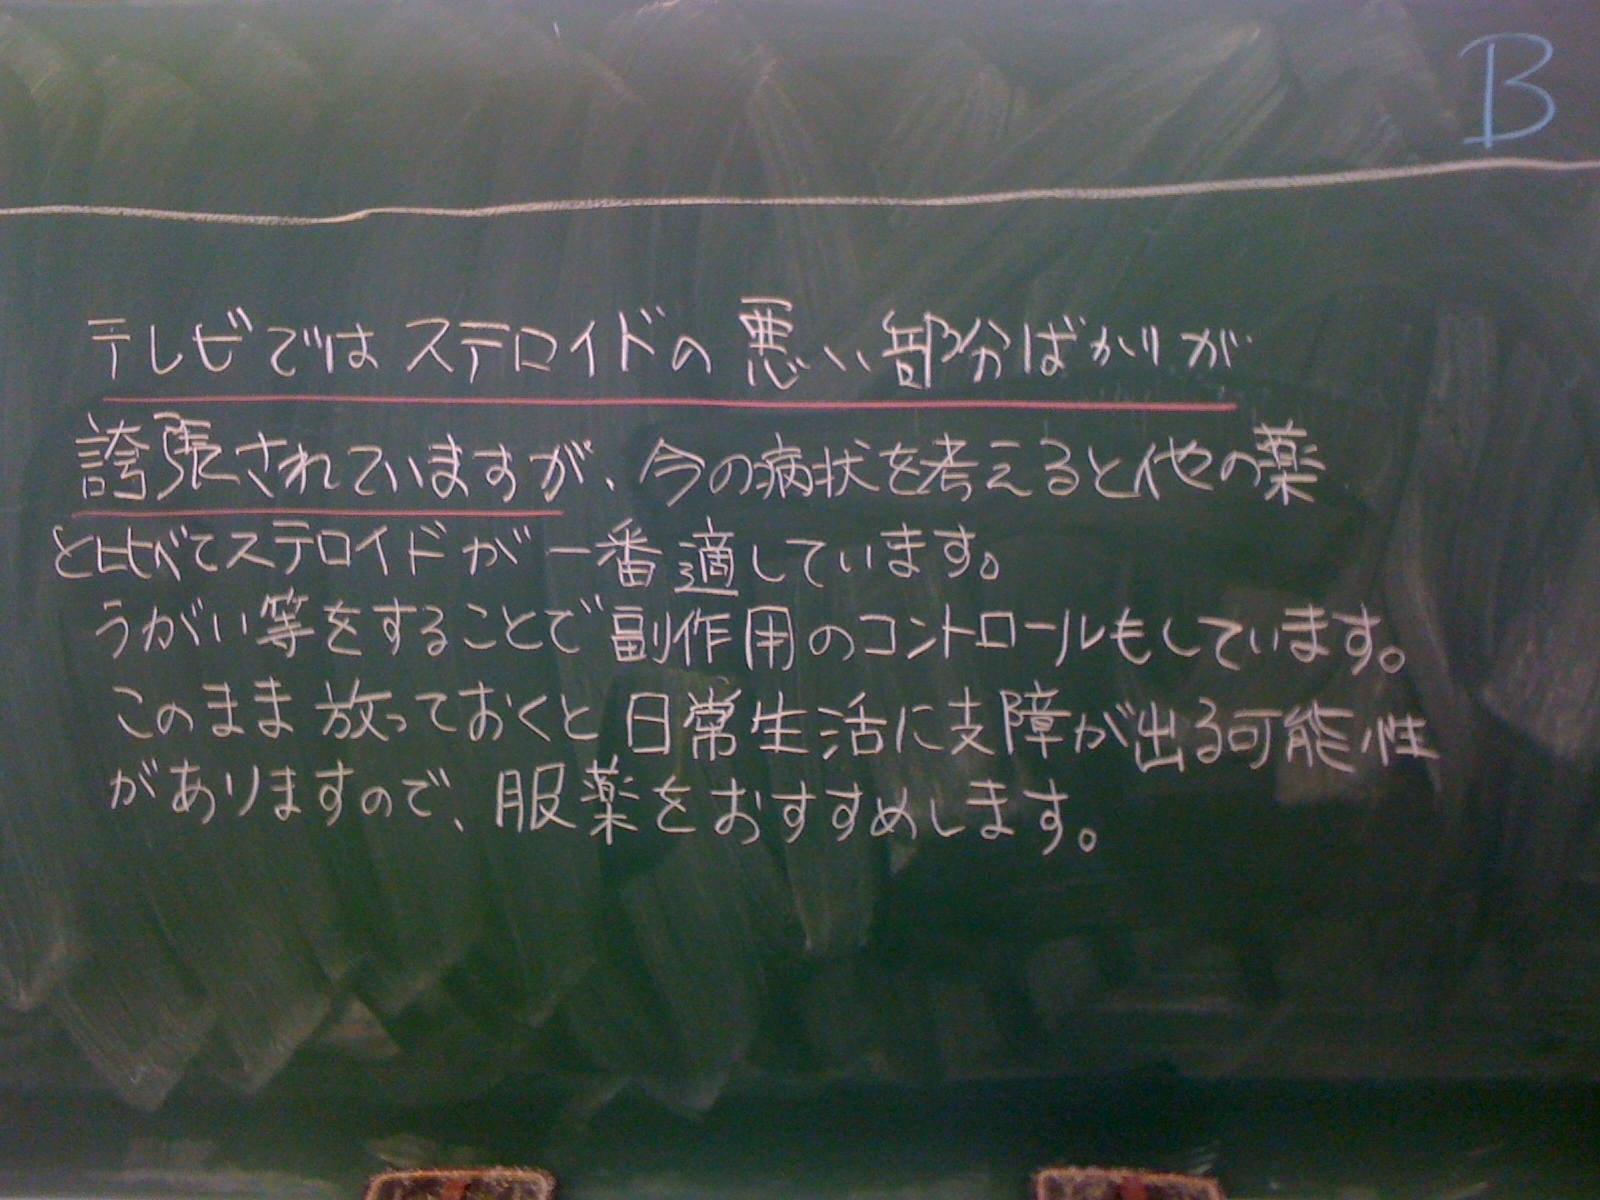 B
テレビではステロイドの悪い部分ばかりが
誇張されていますが、今の病状を考えると他の薬
と比べてステロイドが一番適しています。
うがい等をすることで副作用のコントロールもしています。
このまま放っておくと日常生活に支障が出る可能性
がありますので、服薬をおすすめします。